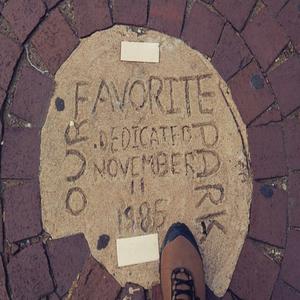 OUR FAVORITE PARK
DEDICATED
NOVEMBER
11
1985